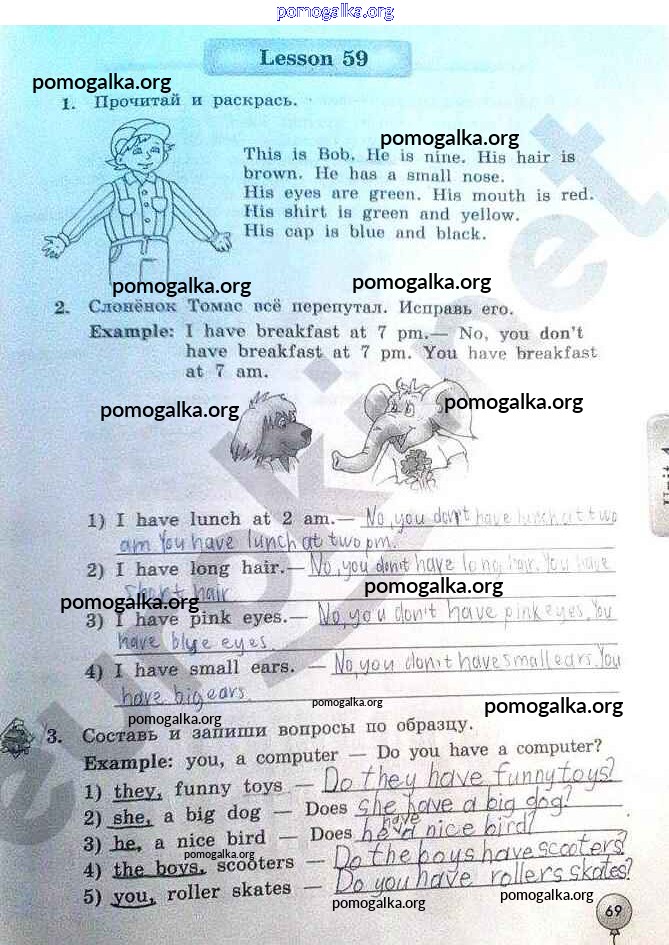 pomogalka.org
Lesson 59
pomogalka.org
1. Прочитай и раскрась.
pomogalka.org
This is Bob. He is nine. His hair is
brown. He has a small nose.
His eyes are green. His mouth is red.
His shirt is green and yellow.
His cap is blue and black.
pomogalka.org
pomogalka.org
2. Слонёнок Томас всё перепутал. Исправь его.
Example: I have breakfast at 7 pm.— No, you don't
have breakfast at 7 pm. You have breakfast
at 7 am.
pomogalka.org
pomogalka.org
1) I have lunch at 2 am.— No, you don't have lunch at two
am. You have lunch at two pm.
2) I have long hair.— No, you don't have long hair. You have
short hair
pomogalka.org
pomogalka.org
3) I have pink eyes.— No, you don't have pink eyes. You
have blue eyes.
4) I have small ears. — No, you don't have small ears. You
have big ears.
pomogalka.org
pomogalka.org
pomogalka.org
3. Составь и запиши вопросы по образцу.
Example: you, a computer — Do you have a computer?
1) they, funny toys — Do they have funny toys?
2) she, a big dog — Does she have a big dog?
3) he, a nice bird — Does he have a nice bird?
pomogalka.org
4) the boys, scooters — Do the boys have scooters?
5) you, roller skates — Do you have rollers skates?
pomogalka.org
pomogalka.org
69
euroki.net